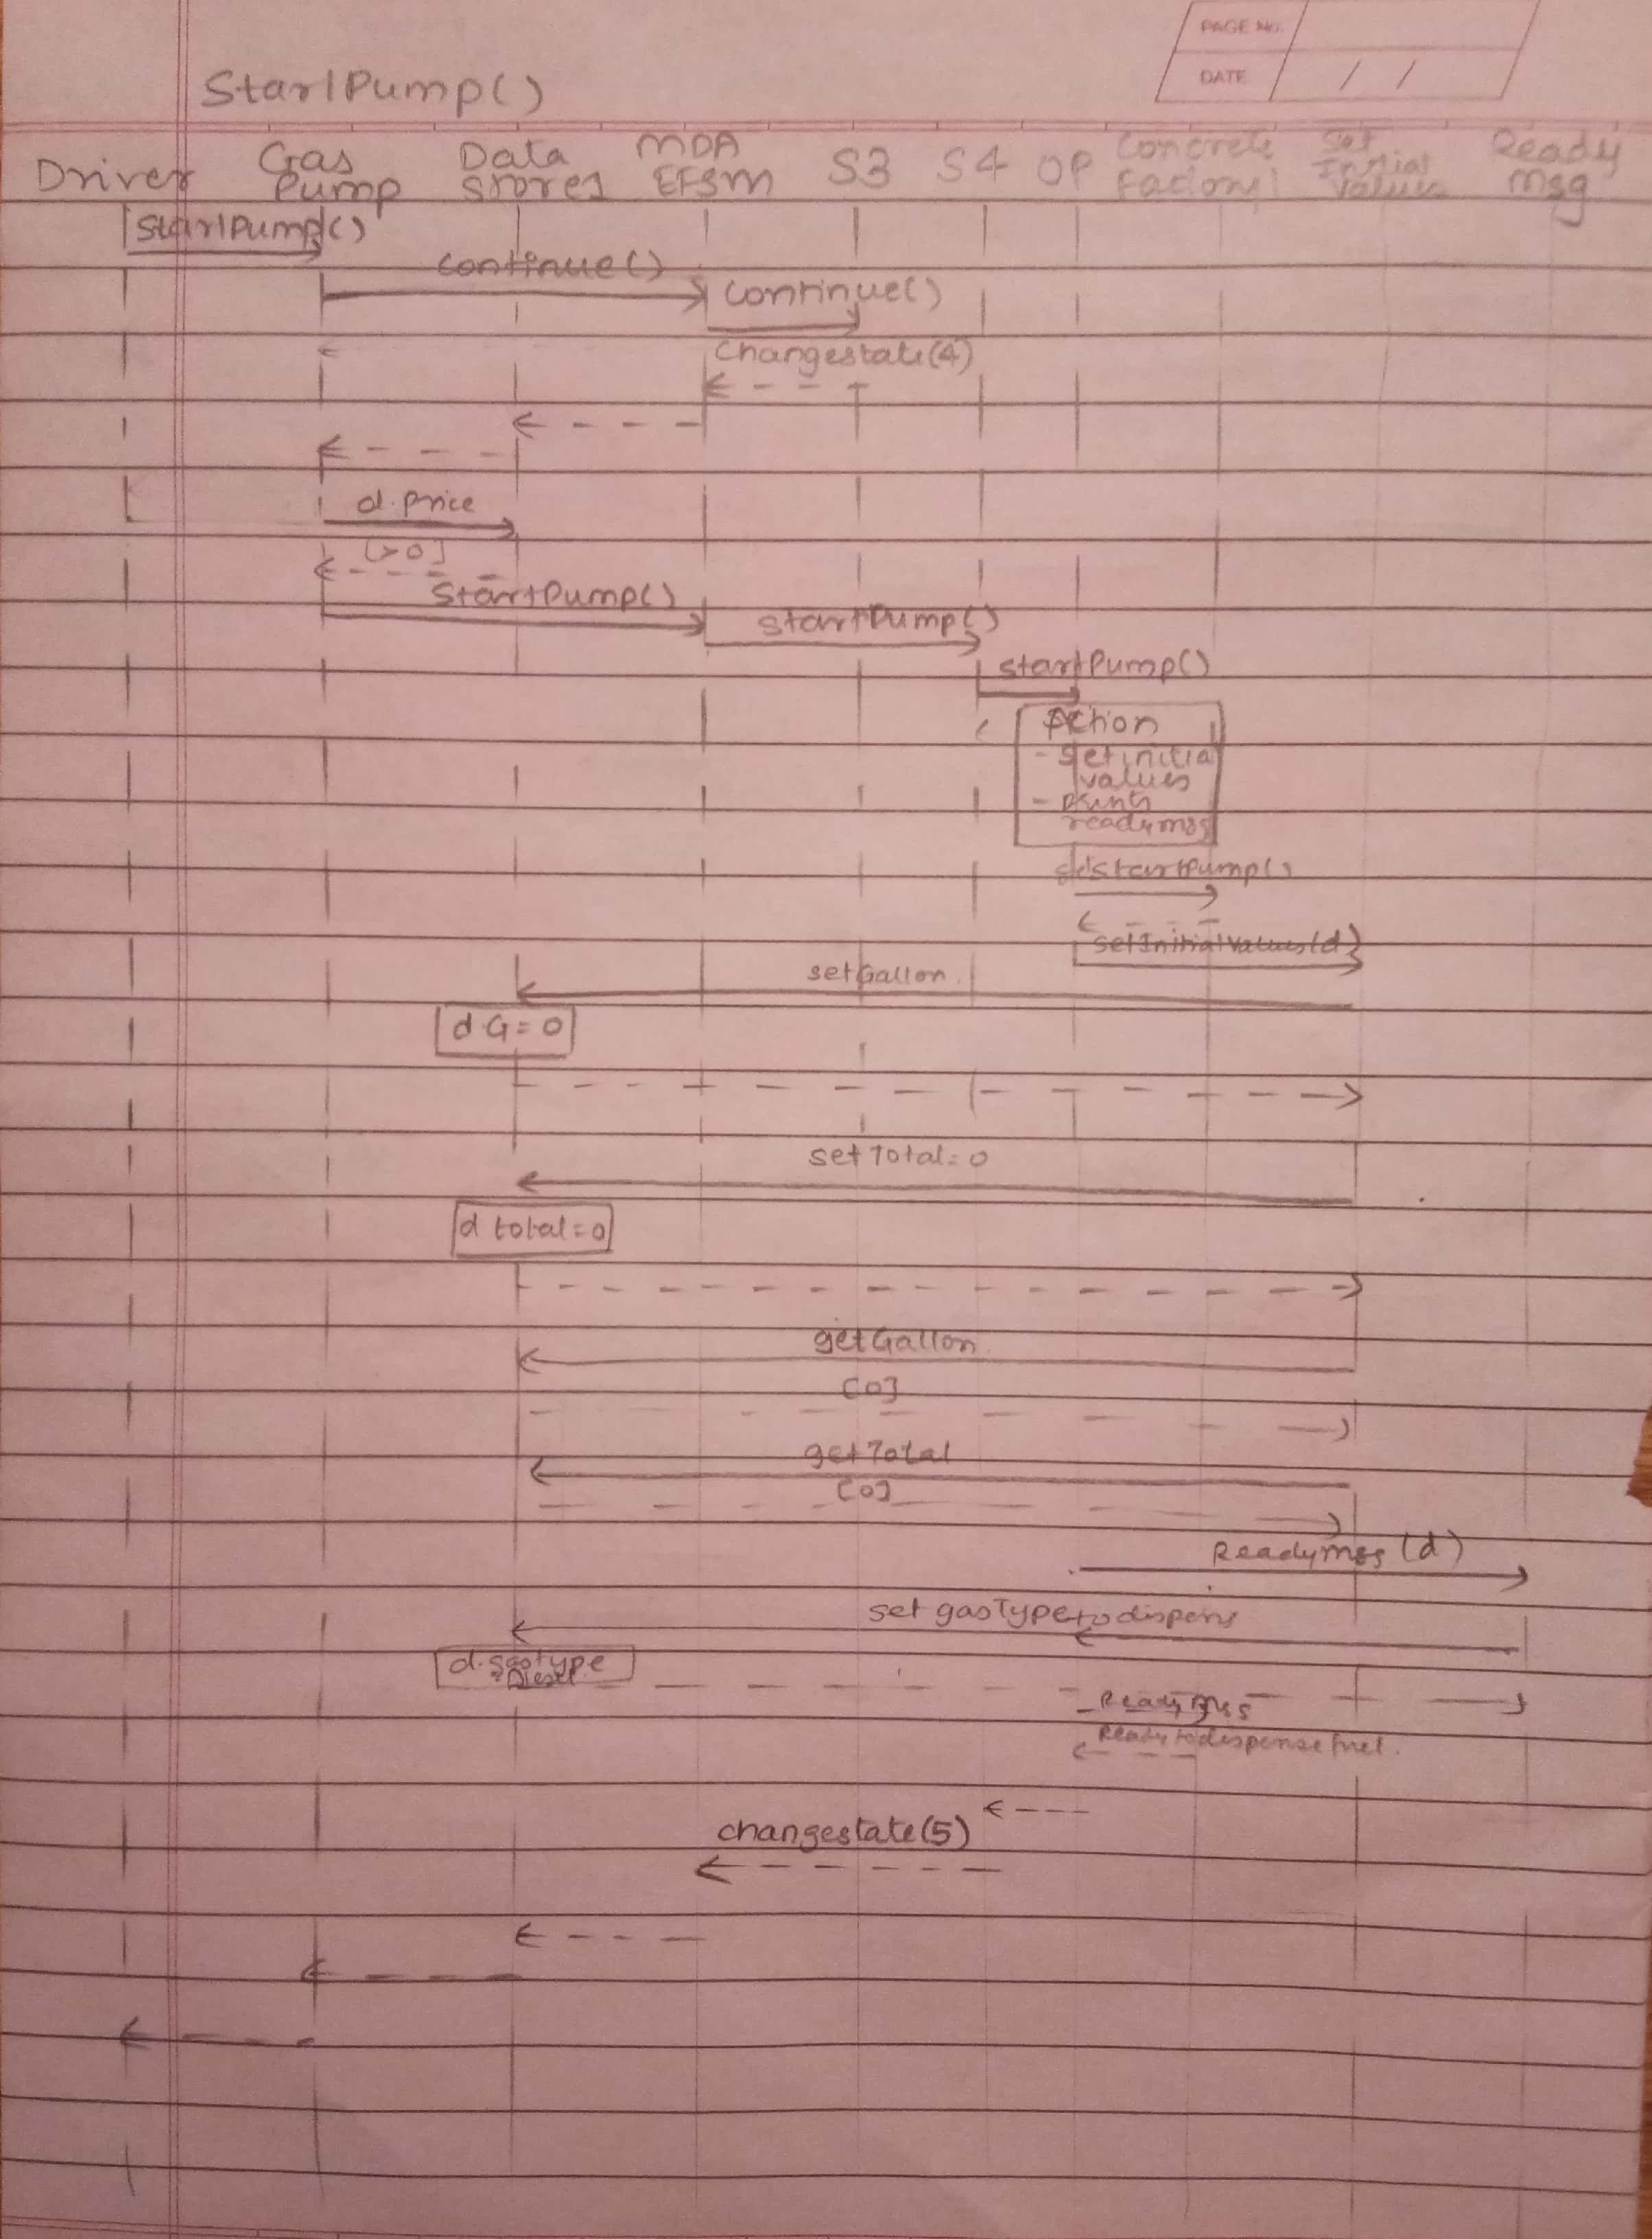 PAGE No.
DATE / /
StartPump()
Driver Gas Pump Data Stores1 MDA EFSM S3 S4 OP Concrete Factory1 Set Initial Values Ready Msg
StartPump()
continue()
continue()
Changestate(4)
d.price
[>0]
StartPump()
startPump()
startPump()
Action
- set initial
values
- prints
readymsg
StartPump()
setInitialValues(d)
setGallon
d.G=0
setTotal=0
d total=0
getGallon
[0]
getTotal
[0]
Readymsg (d)
set gasType to dispens
d.gastype
Diesel
ReadyMsg
Ready to dispense fuel.
changestate(5)